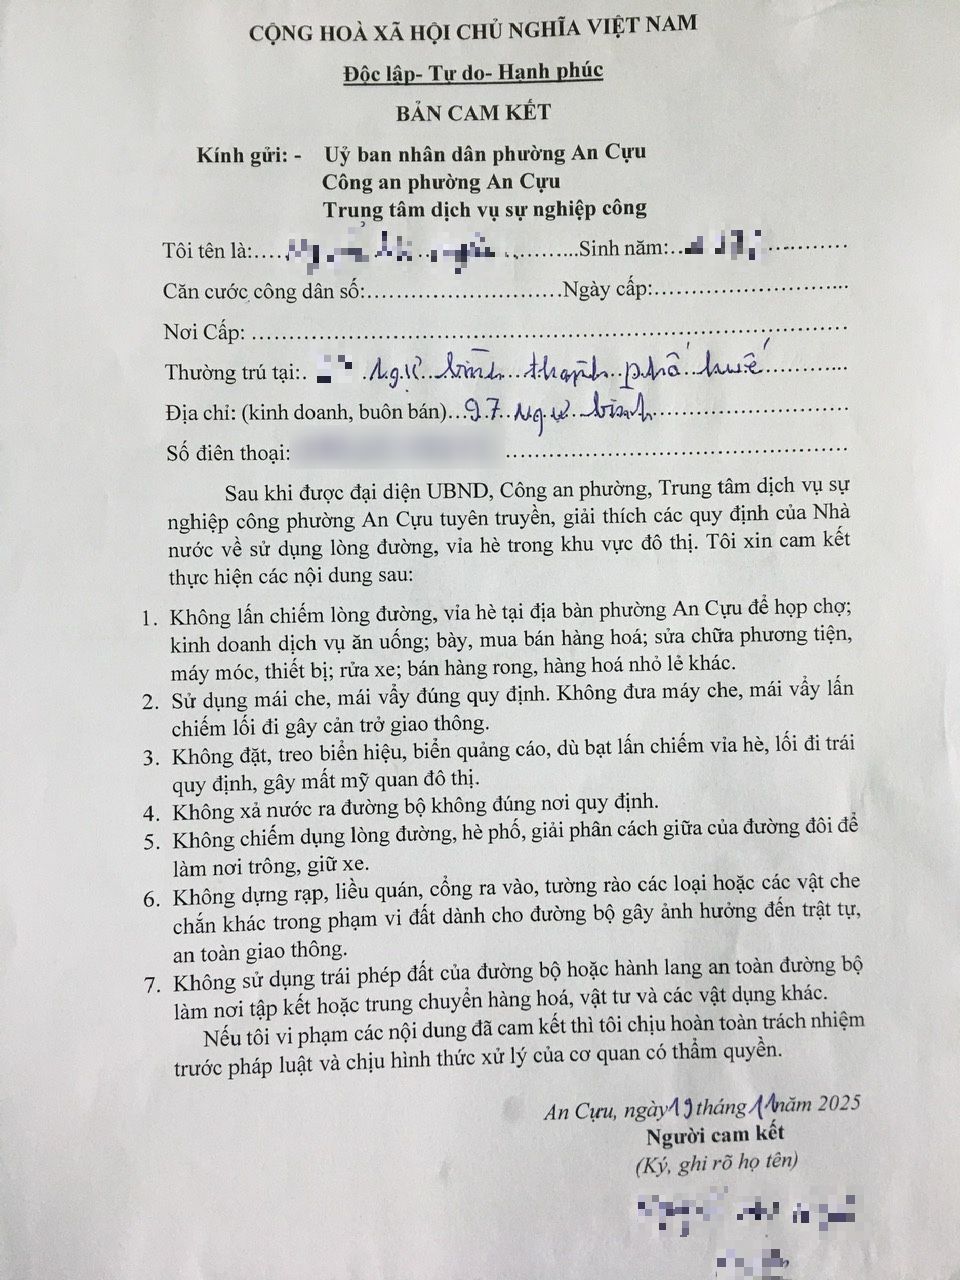 CỘNG HOÀ XÃ HỘI CHỦ NGHĨA VIỆT NAM
Độc lập- Tự do- Hạnh phúc
BẢN CAM KẾT
Kính gửi: - Uỷ ban nhân dân phường An Cựu
Công an phường An Cựu
Trung tâm dịch vụ sự nghiệp công
Tôi tên là:.... ........Sinh năm:.. ............
Căn cước công dân số:..............................Ngày cấp:..............................
Nơi Cấp: ..........................................................................................
Thường trú tại:. .Ngự bình thành phố huế............
Địa chỉ: (kinh doanh, buôn bán)...97 Ngự bình..............................
Số điên thoại: ....................................................
Sau khi được đại diện UBND, Công an phường, Trung tâm dịch vụ sự
nghiệp công phường An Cựu tuyên truyền, giải thích các quy định của Nhà
nước về sử dụng lòng đường, vỉa hè trong khu vực đô thị. Tôi xin cam kết
thực hiện các nội dung sau:
1. Không lấn chiếm lòng đường, vỉa hè tại địa bàn phường An Cựu để họp chợ;
kinh doanh dịch vụ ăn uống; bày, mua bán hàng hoá; sửa chữa phương tiện,
máy móc, thiết bị; rửa xe; bán hàng rong, hàng hoá nhỏ lẻ khác.
2. Sử dụng mái che, mái vẩy đúng quy định. Không đưa máy che, mái vẩy lấn
chiếm lối đi gây cản trở giao thông.
3. Không đặt, treo biển hiệu, biển quảng cáo, dù bạt lấn chiếm vỉa hè, lối đi trái
quy định, gây mất mỹ quan đô thị.
4. Không xả nước ra đường bộ không đúng nơi quy định.
5. Không chiếm dụng lòng đường, hè phố, giải phân cách giữa của đường đôi để
làm nơi trông, giữ xe.
6. Không dựng rạp, liều quán, cổng ra vào, tường rào các loại hoặc các vật che
chắn khác trong phạm vi đất dành cho đường bộ gây ảnh hưởng đến trật tự,
an toàn giao thông.
7. Không sử dụng trái phép đất của đường bộ hoặc hành lang an toàn đường bộ
làm nơi tập kết hoặc trung chuyển hàng hoá, vật tư và các vật dụng khác.
Nếu tôi vi phạm các nội dung đã cam kết thì tôi chịu hoàn toàn trách nhiệm
trước pháp luật và chịu hình thức xử lý của cơ quan có thẩm quyền.
An Cựu, ngày 19 tháng 11 năm 2025
Người cam kết
(Ký, ghi rõ họ tên)